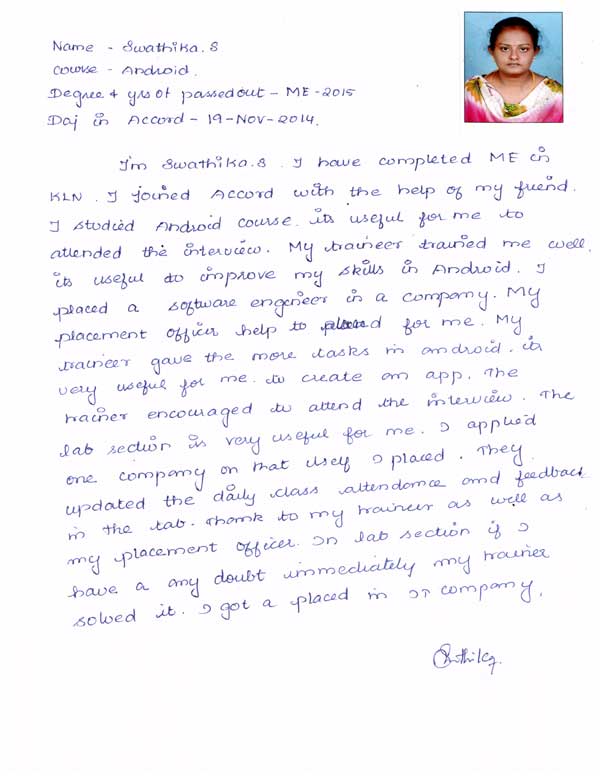 Name - Swathika.S
Course - Android.
Degree & yrs of passedout - ME - 2015
Doj in Accord - 19-Nov-2014.
I'm Swathika.S. I have completed ME in
KLN. I joined Accord with the help of my friend.
I studied Android course. its useful for me to
attended the interview. My traineer trained me well.
its useful to improve my skills in Android. I
placed a software engineer in a company. My
placement officer help to placed for me. My
traineer gave the more tasks in android. its
very useful for me. to create an app. The
trainer encouraged to attend the interview. The
lab section is very useful for me. I applied
one company on that itself I placed. They
updated the daily class attendance and feedback
in the lab. Thank to my traineer as well as
my placement officer. In lab section if I
have a any doubt immediately my trainer
solved it. I got a placed in IT company.
Swathika.